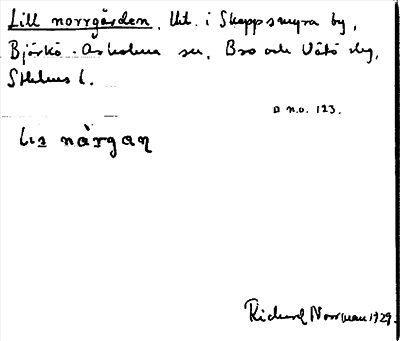 Lill norrgården. Utl. i Skeppsmyra by,
Björkö-Arholma sn, Bro och Vätö skg,
Sthlms l.
D n.o. 123.
lɪɪ nårgaɳ
Richard Norrman 1929.